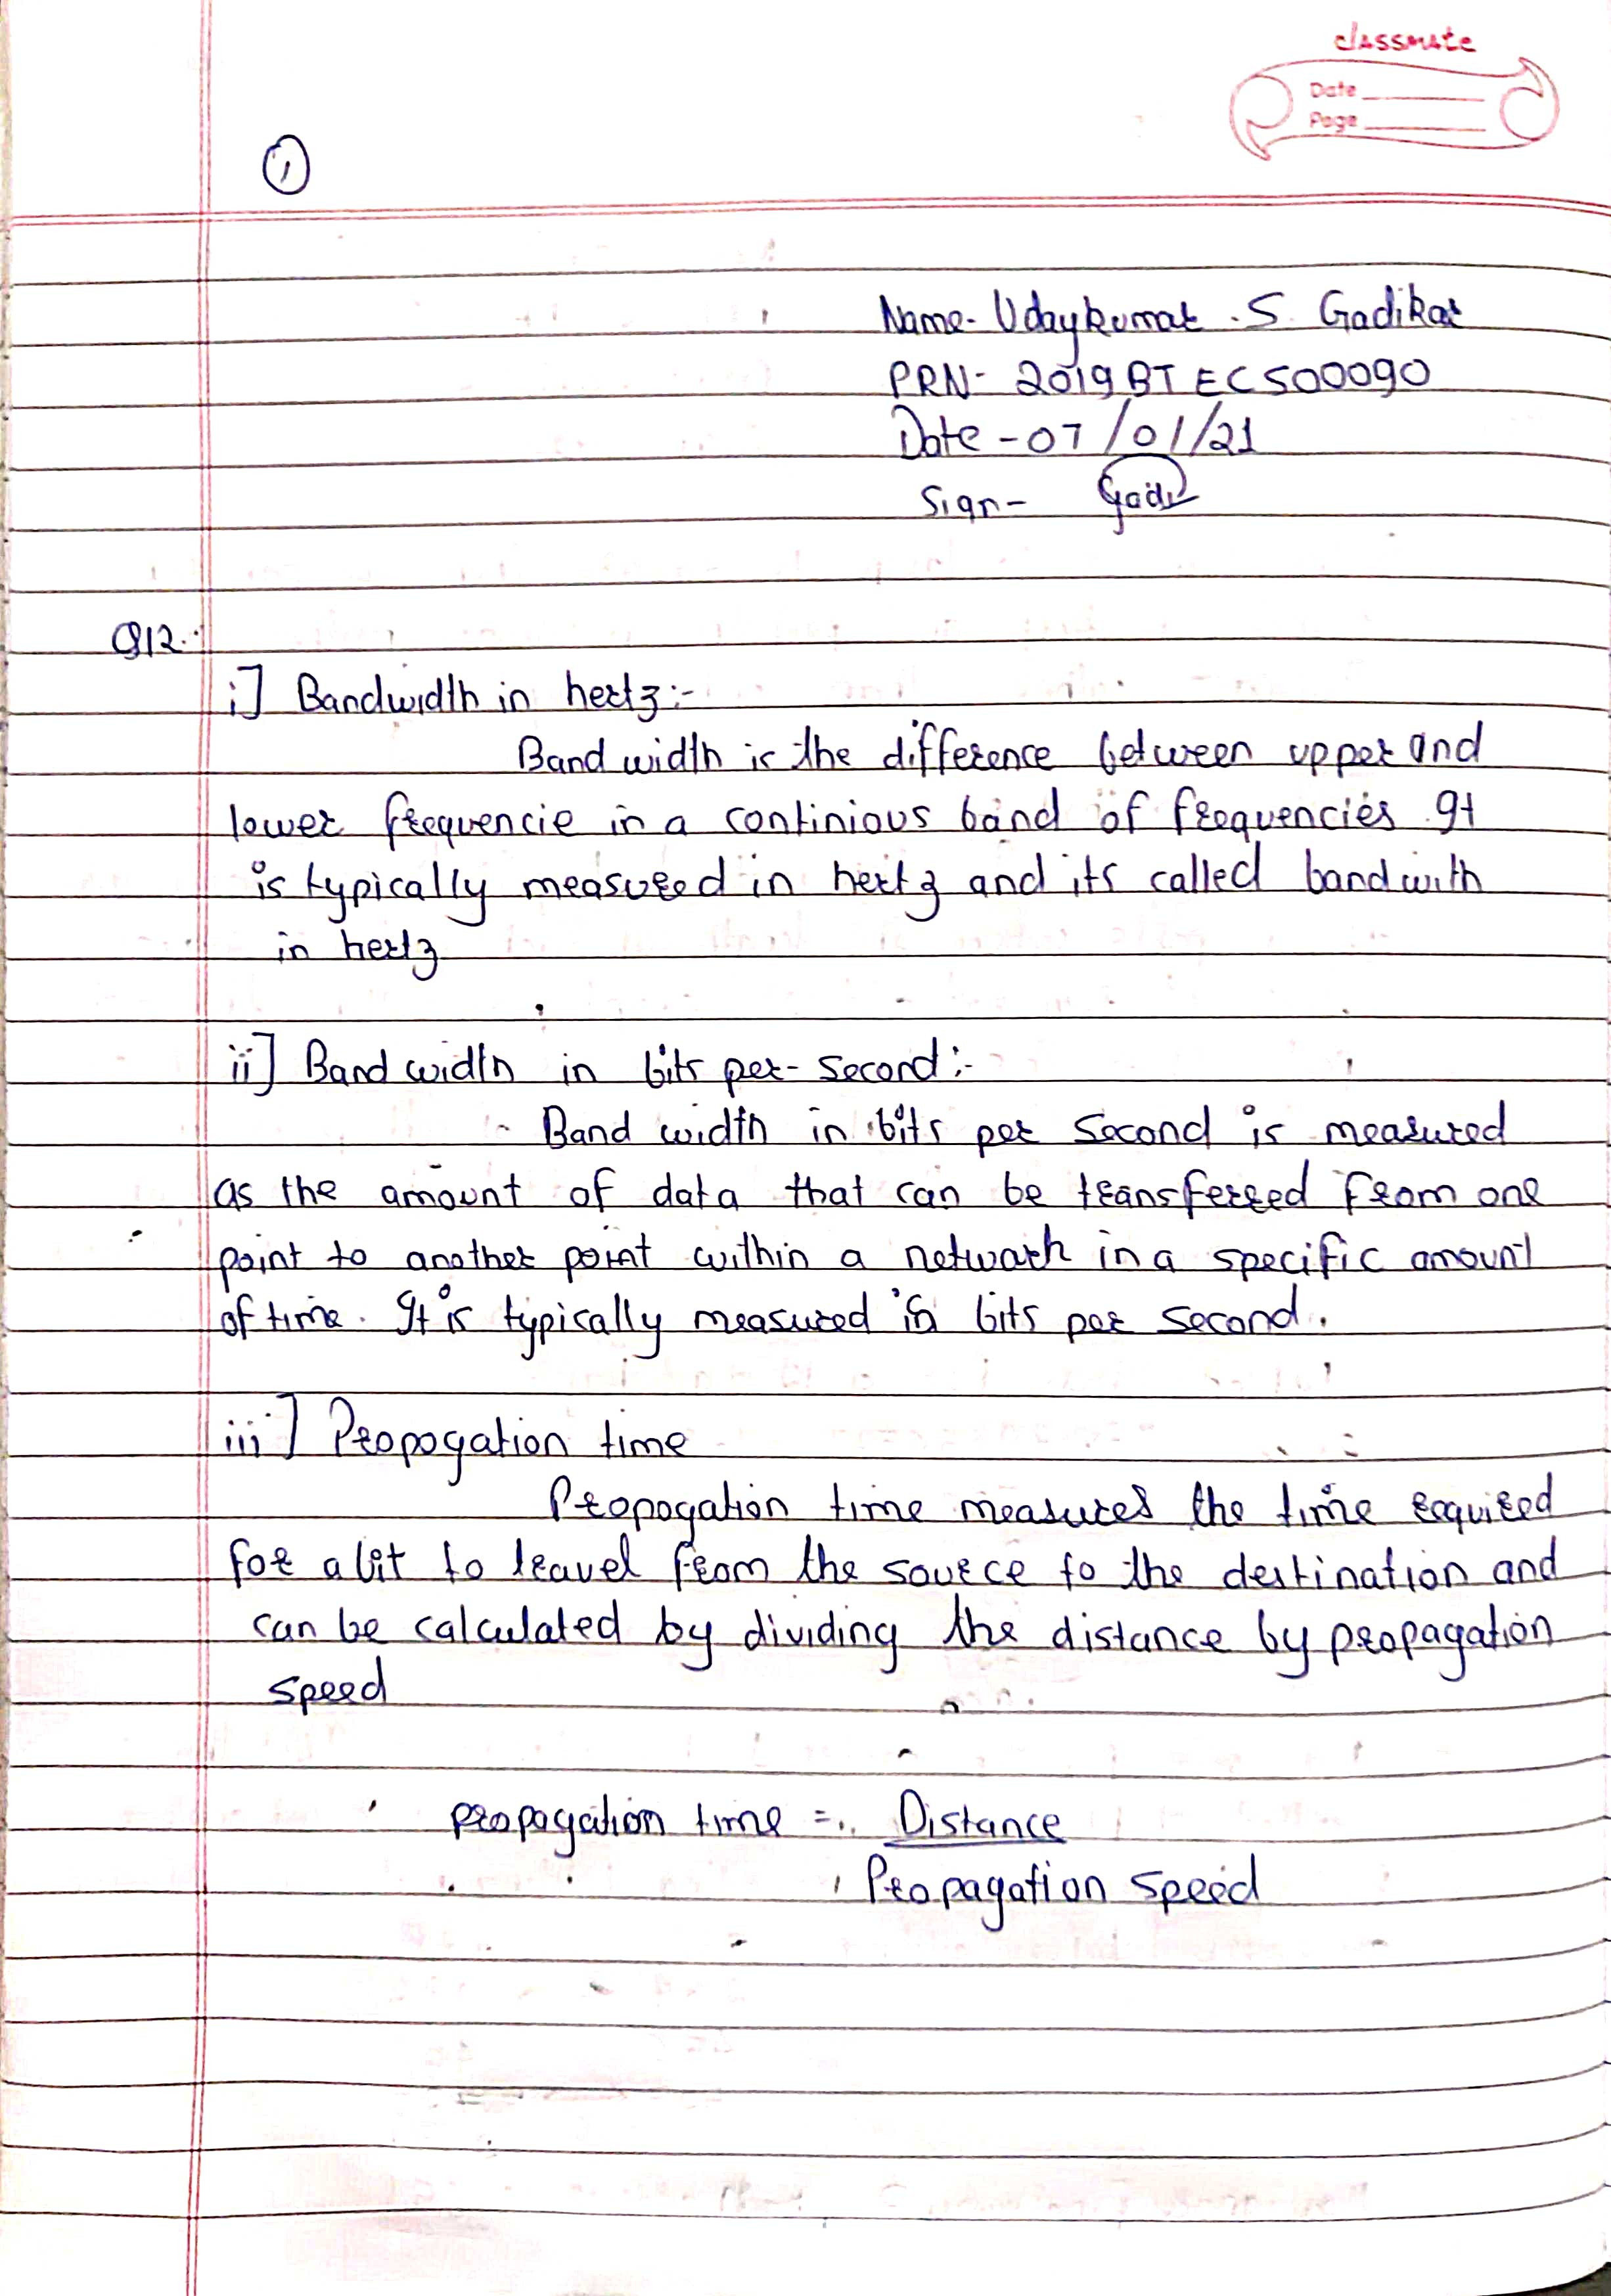 classmate
Date
Page
1
Name- Udaykumar .S. Gadikar
PRN- 2019BTECS00090
Date - 07/01/21
Sign- Gadi
Q12.
i] Bandwidth in hertz:-
Band width is the difference between upper and
lower frequencie in a continious band of frequencies It
is typically measured in hertz and its called bandwith
in hertz
ii] Band width in bits per-second:-
Band width in bits per second is measured
as the amount of data that can be transferred from one
point to another point within a network in a specific amount
of time. It is typically measured in bits per second.
iii] Propogation time
Propogation time measures the time required
for a bit to travel from the source to the destination and
can be calculated by dividing the distance by propagation
speed
propagation time = Distance
Propagation speed